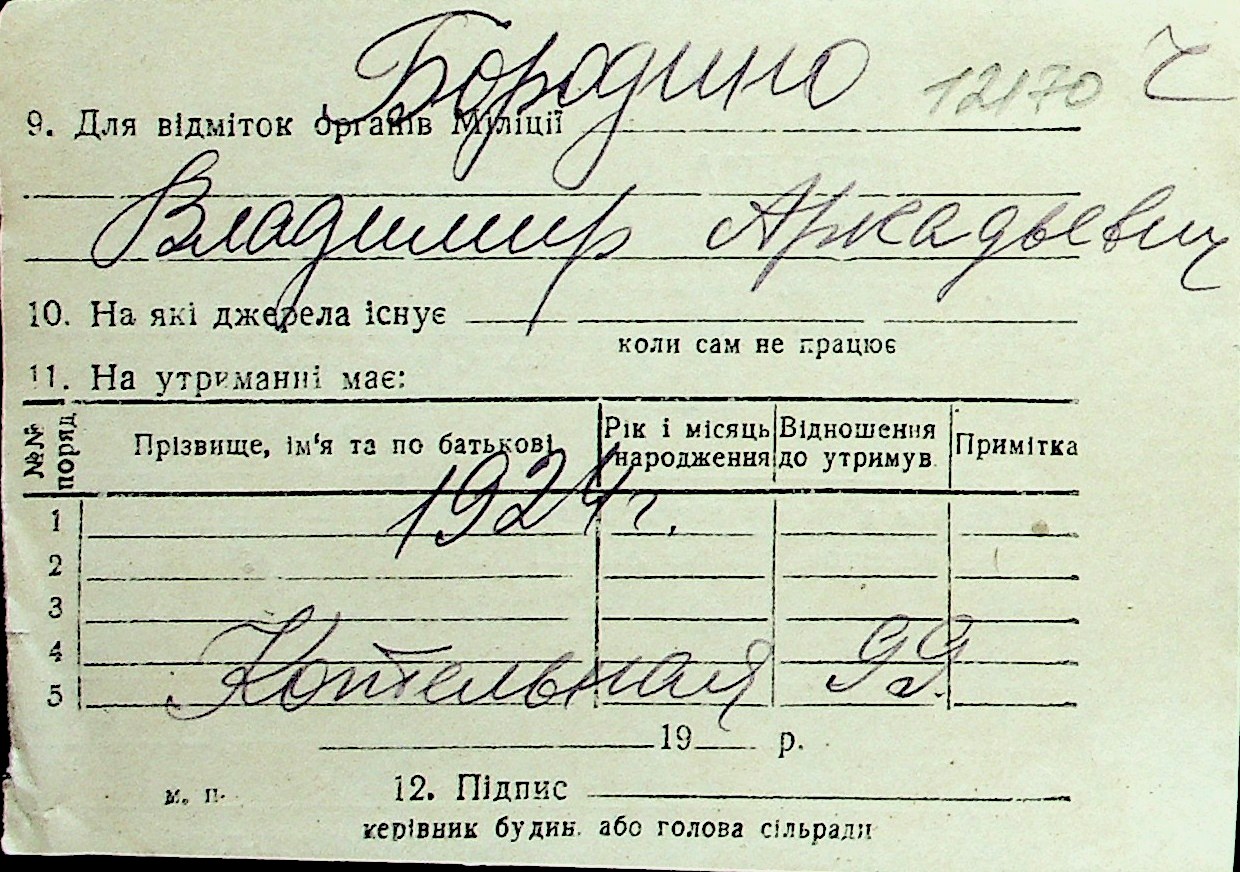 Бородино 12170 Ч
9. Для відміток органів Міліції
Владимир Аркадьевич
10. На які джерела існує
коли сам не працює
11. На утриманні має:
№№ поряд. Прізвище, ім'я та по батькові Рік і місяць народження Відношення до утримув. Примітка
1924 г.
1
2
3
4
5
Котельная 99
19 р.
м. п. 12. Підпис
керівник будин. або голова сільради